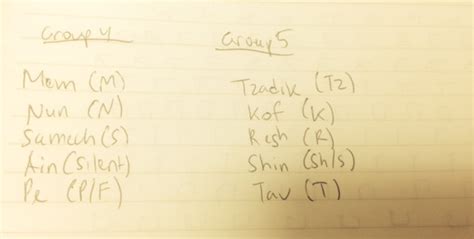 Group 4
Mem (M)
Nun (N)
Samech (S)
Ain (Silent)
Pe (P/F)
Group 5
Tzadik (Tz)
Kof (K)
Resh (R)
Shin (Sh/s)
Tav (T)